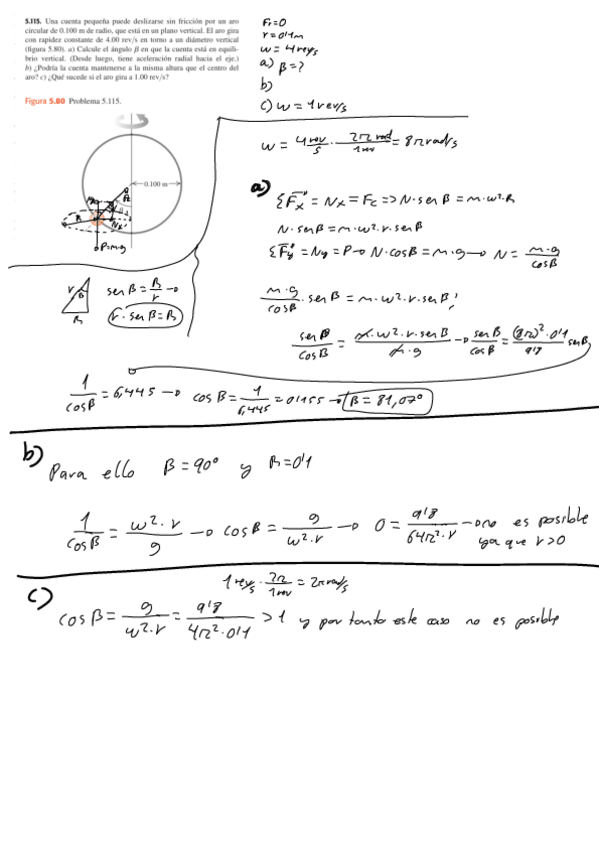 5.115. Una cuenta pequeña puede deslizarse sin fricción por un aro
circular de 0.100 m de radio, que está en un plano vertical. El aro gira
con rapidez constante de 4.00 rev/s en torno a un diámetro vertical
(figura 5.80). a) Calcule el ángulo β en que la cuenta está en equili-
brio vertical. (Desde luego, tiene aceleración radial hacia el eje.)
b) ¿Podría la cuenta mantenerse a la misma altura que el centro del
aro? c) ¿Qué sucede si el aro gira a 1.00 rev/s?
Figura 5.80 Problema 5.115.
Fr=0
r=0'1m
w = 4 rev/s
a) β=?
b)
c) w = 1 rev/s
0.100 m
β
R
Nx
P=m·g
w = 4 rev/s · 2π rad/1 rev = 8π rad/s
a)
ΣFx = Nx = Fc => N·sen β = m·w²·R
N·sen β = m·w²·r·sen β
ΣFy = Ny = P → N·cos β = m·g → N = m·g/cos β
r
β
R
sen β = R/r →
r·sen β = R
m·g/cos β · sen β = m·w²·r·sen β;
sen β/cos β = m·w²·r·sen β/m·g → sen β/cos β = (8π)²·0'1/9'8 sen β
1/cos β = 6,445 → cos β = 1/6,445 = 0'155 → β = 81,07°
b)
Para ello β = 90° y R=0'1
1/cos β = w²·r/g → cos β = g/w²·r → 0 = 9'8/64π²·r → no es posible
ya que r>0
c)
1 rev/s · 2π/1 rev = 2π rad/s
cos β = g/w²·r = 9'8/4π²·0'1 > 1 y por tanto este caso no es posible